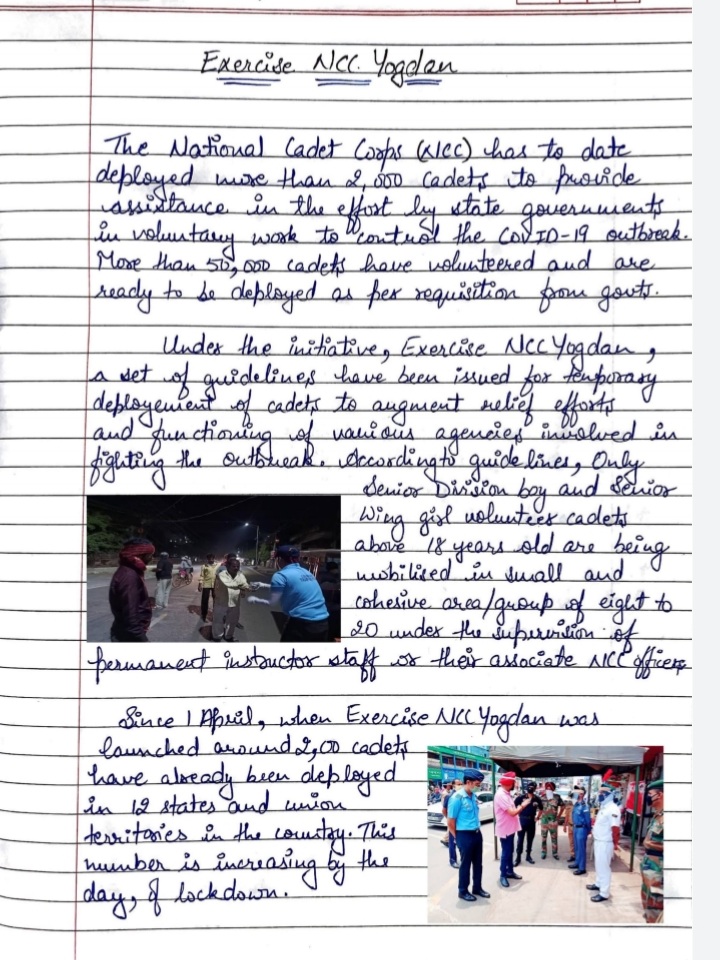 Exercise NCC Yogdan
The National Cadet Corps (NCC) has to date
deployed more than 2,000 cadets to provide
assistance in the effort by state governments
in voluntary work to control the COVID-19 outbreak.
More than 50,000 cadets have volunteered and are
ready to be deployed as per requisition from govts.
Under the initiative, Exercise NCC Yogdan,
a set of guidelines have been issued for temporary
deployement of cadets to augment relief efforts
and functioning of various agencies involved in
fighting the outbreak. According to guidelines, Only
Senior Division boy and Senior
Wing girl volunteer cadets
above 18 years old are being
mobilised in small and
cohesive area/group of eight to
20 under the supervision of
permanent instructor staff or their associate NCC officers
Since 1 April, when Exercise NCC Yogdan was
launched around 2,00 cadets
have already been deployed
in 12 states and union
territories in the country. This
number is increasing by the
day, of lockdown.